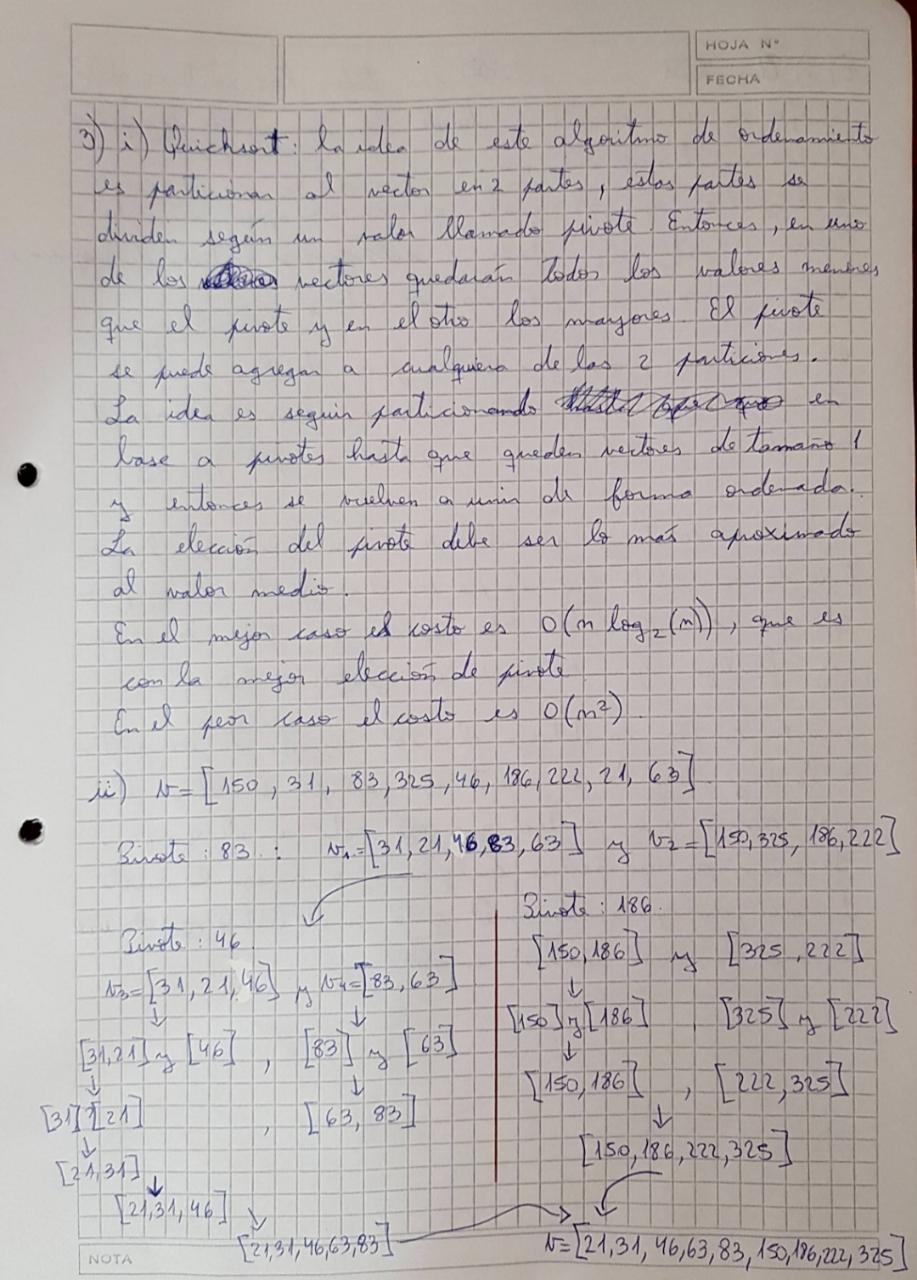 HOJA N°
FECHA
3) i) Quicksort: la idea de este algoritmo de ordenamiento
es particionar al vector en 2 partes, estas partes se
dividen según un valor llamado pivote. Entonces, en uno
de los vectores quedarán todos los valores menores
que el pivote y en el otro los mayores. El pivote
se puede agregar a cualquiera de las 2 particiones.
La idea es seguir particionando en
base a pivotes hasta que queden vectores de tamaño 1
y entonces se vuelven a unir de forma ordenada.
La elección del pivote debe ser lo más aproximado
al valor medio.
En el mejor caso el costo es O(n log₂(n)), que es
con la mejor elección de pivote
En el peor caso el costo es O(n²).
ii) v=[150, 31, 83, 325, 46, 186, 222, 21, 63]
Pivote: 83 : v₁=[31, 21, 46, 83, 63] y v₂=[150, 325, 186, 222]
Pivote: 186.
Pivote: 46
[150, 186] y [325, 222]
v₃=[31, 21, 46] y v₄=[83, 63]
[150] y [186] , [325] y [222]
[31,21] y [46] , [83] y [63]
[150, 186] , [222, 325]
[31] y [21] , [63, 83]
[150, 186, 222, 325]
[21, 31]
[21, 31, 46]
[21, 31, 46, 63, 83] v=[21, 31, 46, 63, 83, 150, 186, 222, 325]
NOTA